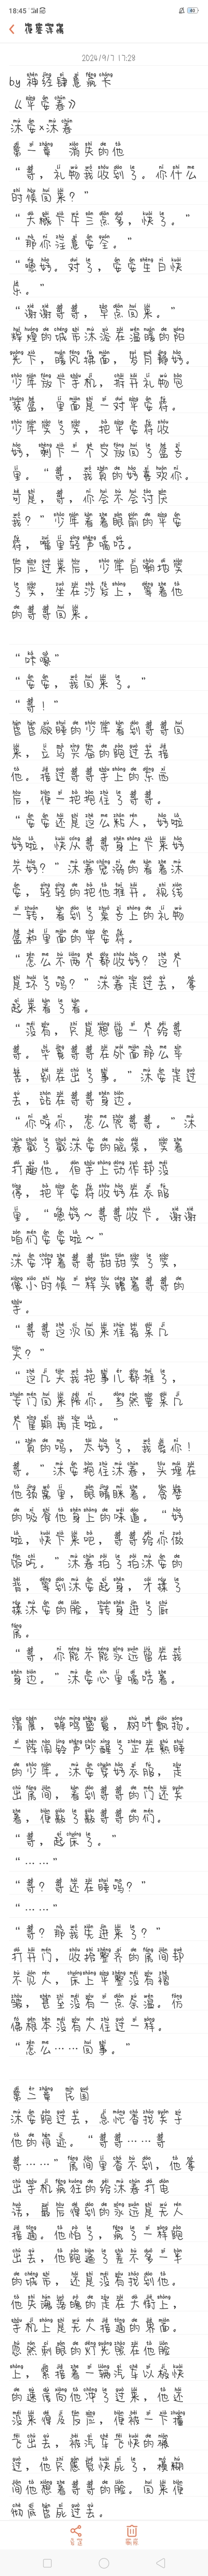 18:45
2024/9/7 17:28
by 神经肆意病卡
《平安春》
沐安×沐春
第一章 消失的他
“哥，礼物我收到了。你什么
时候回来？”
“大概下午三点多，快了。”
“那你注意安全。”
“嗯好。对了，安安生日快
乐。”
“谢谢哥哥，早点回来。”
辉煌的城市沐浴在温暖的阳
光下，暖风拂面，岁月静好。
少年放下手机，拆开礼物包
装盒，里面是一对平安符。
少年笑了笑，把平安符收
好，剩下一个又放回了盒子
里。“哥，我真的好喜欢你。
可是，哥，你会不会讨厌
我？”少年看着眼前的平安
符，嘴里轻声嘀咕。
反应过来后，少年自嘲地笑
了笑，坐在沙发上，等着他
的哥哥回来。
“咔嚓”
“安安，我回来了。”
“哥！”
昏昏欲睡的少年看到哥哥回
来，立马兴奋的跑过去抱
他。接过哥哥手上的东西
后，便一把抱住了哥哥。
“安安还是这么黏人，好啦
好啦，快从哥哥身上下来好
不好？”沐春宠溺的看着沐
安，轻轻的把他推开。视线
一转，看到了桌子上的礼物
盒和里面的平安符。
“怎么不两个都收好？这个
是坏了吗？”沐春走过去，拿
起来看了看。
“没有，只是想留一个给哥
哥。毕竟哥哥在外面那么辛
苦，别在出了事。”沐安走过
去，站在哥哥身边。
“你呀你，怎么咒哥哥。”沐
春戳了戳沐安的脑袋，笑着
打趣他。但手上动作却没
停，把平安符收好在衣服
里。“嗯好～哥哥收下。谢谢
咱们安安啦～”
沐安冲着哥哥甜甜笑了笑，
像小时候一样头蹭着哥哥的
手。
“哥哥这次回来准备呆几
天？”
“这几天我把事儿都推了，
专门回来陪你。当然要呆几
个星期再走啦。”
“真的吗，太好了，我爱你！
哥。”沐安抱住沐春，头埋在
他颈窝里，眼睛眯着。贪婪
的吸食他身上的味道。“好
啦，快下来吧，哥哥给你做
饭吃。”沐春拍了拍沐安的
背，等到沐安起身，才揉了
揉沐安的脸，转身进了厨
房。
“哥，你能不能永远留在我
身边。”沐安心里嘀咕着。
清晨，蝉鸣盛夏，树叶飘扬。
一阵闹铃声吵醒了正在熟睡
的少年。沐安穿好衣服，走
出房间，看到哥哥的门还关
着，便敲了敲哥哥的们。
“哥，起床了。”
“……”
“哥？哥还在睡吗？”
“……”
“哥？那我先进来了？”
打开门，收拾整齐的房间却
不见人，床上平整没有褶
皱，甚至没有一点余温。仿
佛根本没有人住过一样。
“怎么……回事。”
第二章 民国
沐安跑过去，急忙查找关于
他的痕迹。“哥哥……哥
哥……”房间里查不到，他拿
出手机疯狂的给沐春打电
话，最后得到的永远是无人
接通。他怕了，疯了一样跑
出去，他跑遍了差不多一半
的城市，还是没有找到他。
他失魂落魄的走在大街上，
手机上是无人接通的界面。
忽然刺眼的灯光照在他脸
上，紧接着一辆汽车以极快
的速度向他冲了过来，他还
没来得及反应，便被一下撞
飞出去，被汽车飞快的碾
过，他只感觉快死了，模糊
间他想着哥哥的脸。回来便
彻底昏死过去。